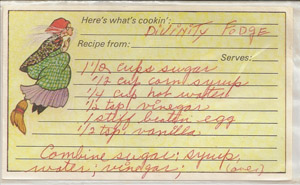 Here's what's cookin': DIVINITY FUDGE
Recipe from: Serves:
1 1/2 cups sugar
1/2 cup corn syrup
1/4 cup hot water
1/2 tsp. vinegar
1 stiff beaten egg
1/2 tsp. vanilla
Combine sugar; syrup,
water; vinegar; (over)